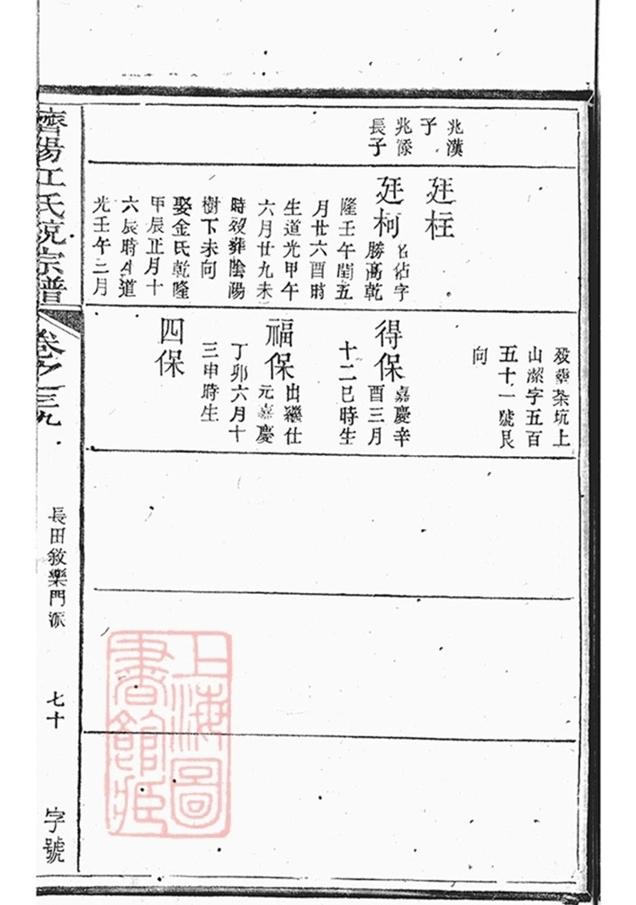 兆漢
子
兆
長子
廷柱
廷柯
名佔字
勝高乾
隆壬午閏五
月廿六酉時
生道光甲午
六月廿九未
時歿葬陰陽
樹下未向
娶金氏乾隆
甲辰正月十
六辰時生道
光壬午二月
歿葬茶坑上
山潔字五百
五十一號艮
向
得保
嘉慶辛
酉三月
十二巳時生
福保
出繼仕
元嘉慶
丁卯六月十
三申時生
四保
濟陽江氏統宗譜
卷之三九
長田敘樂門派
七十
字號
上海圖
書館藏